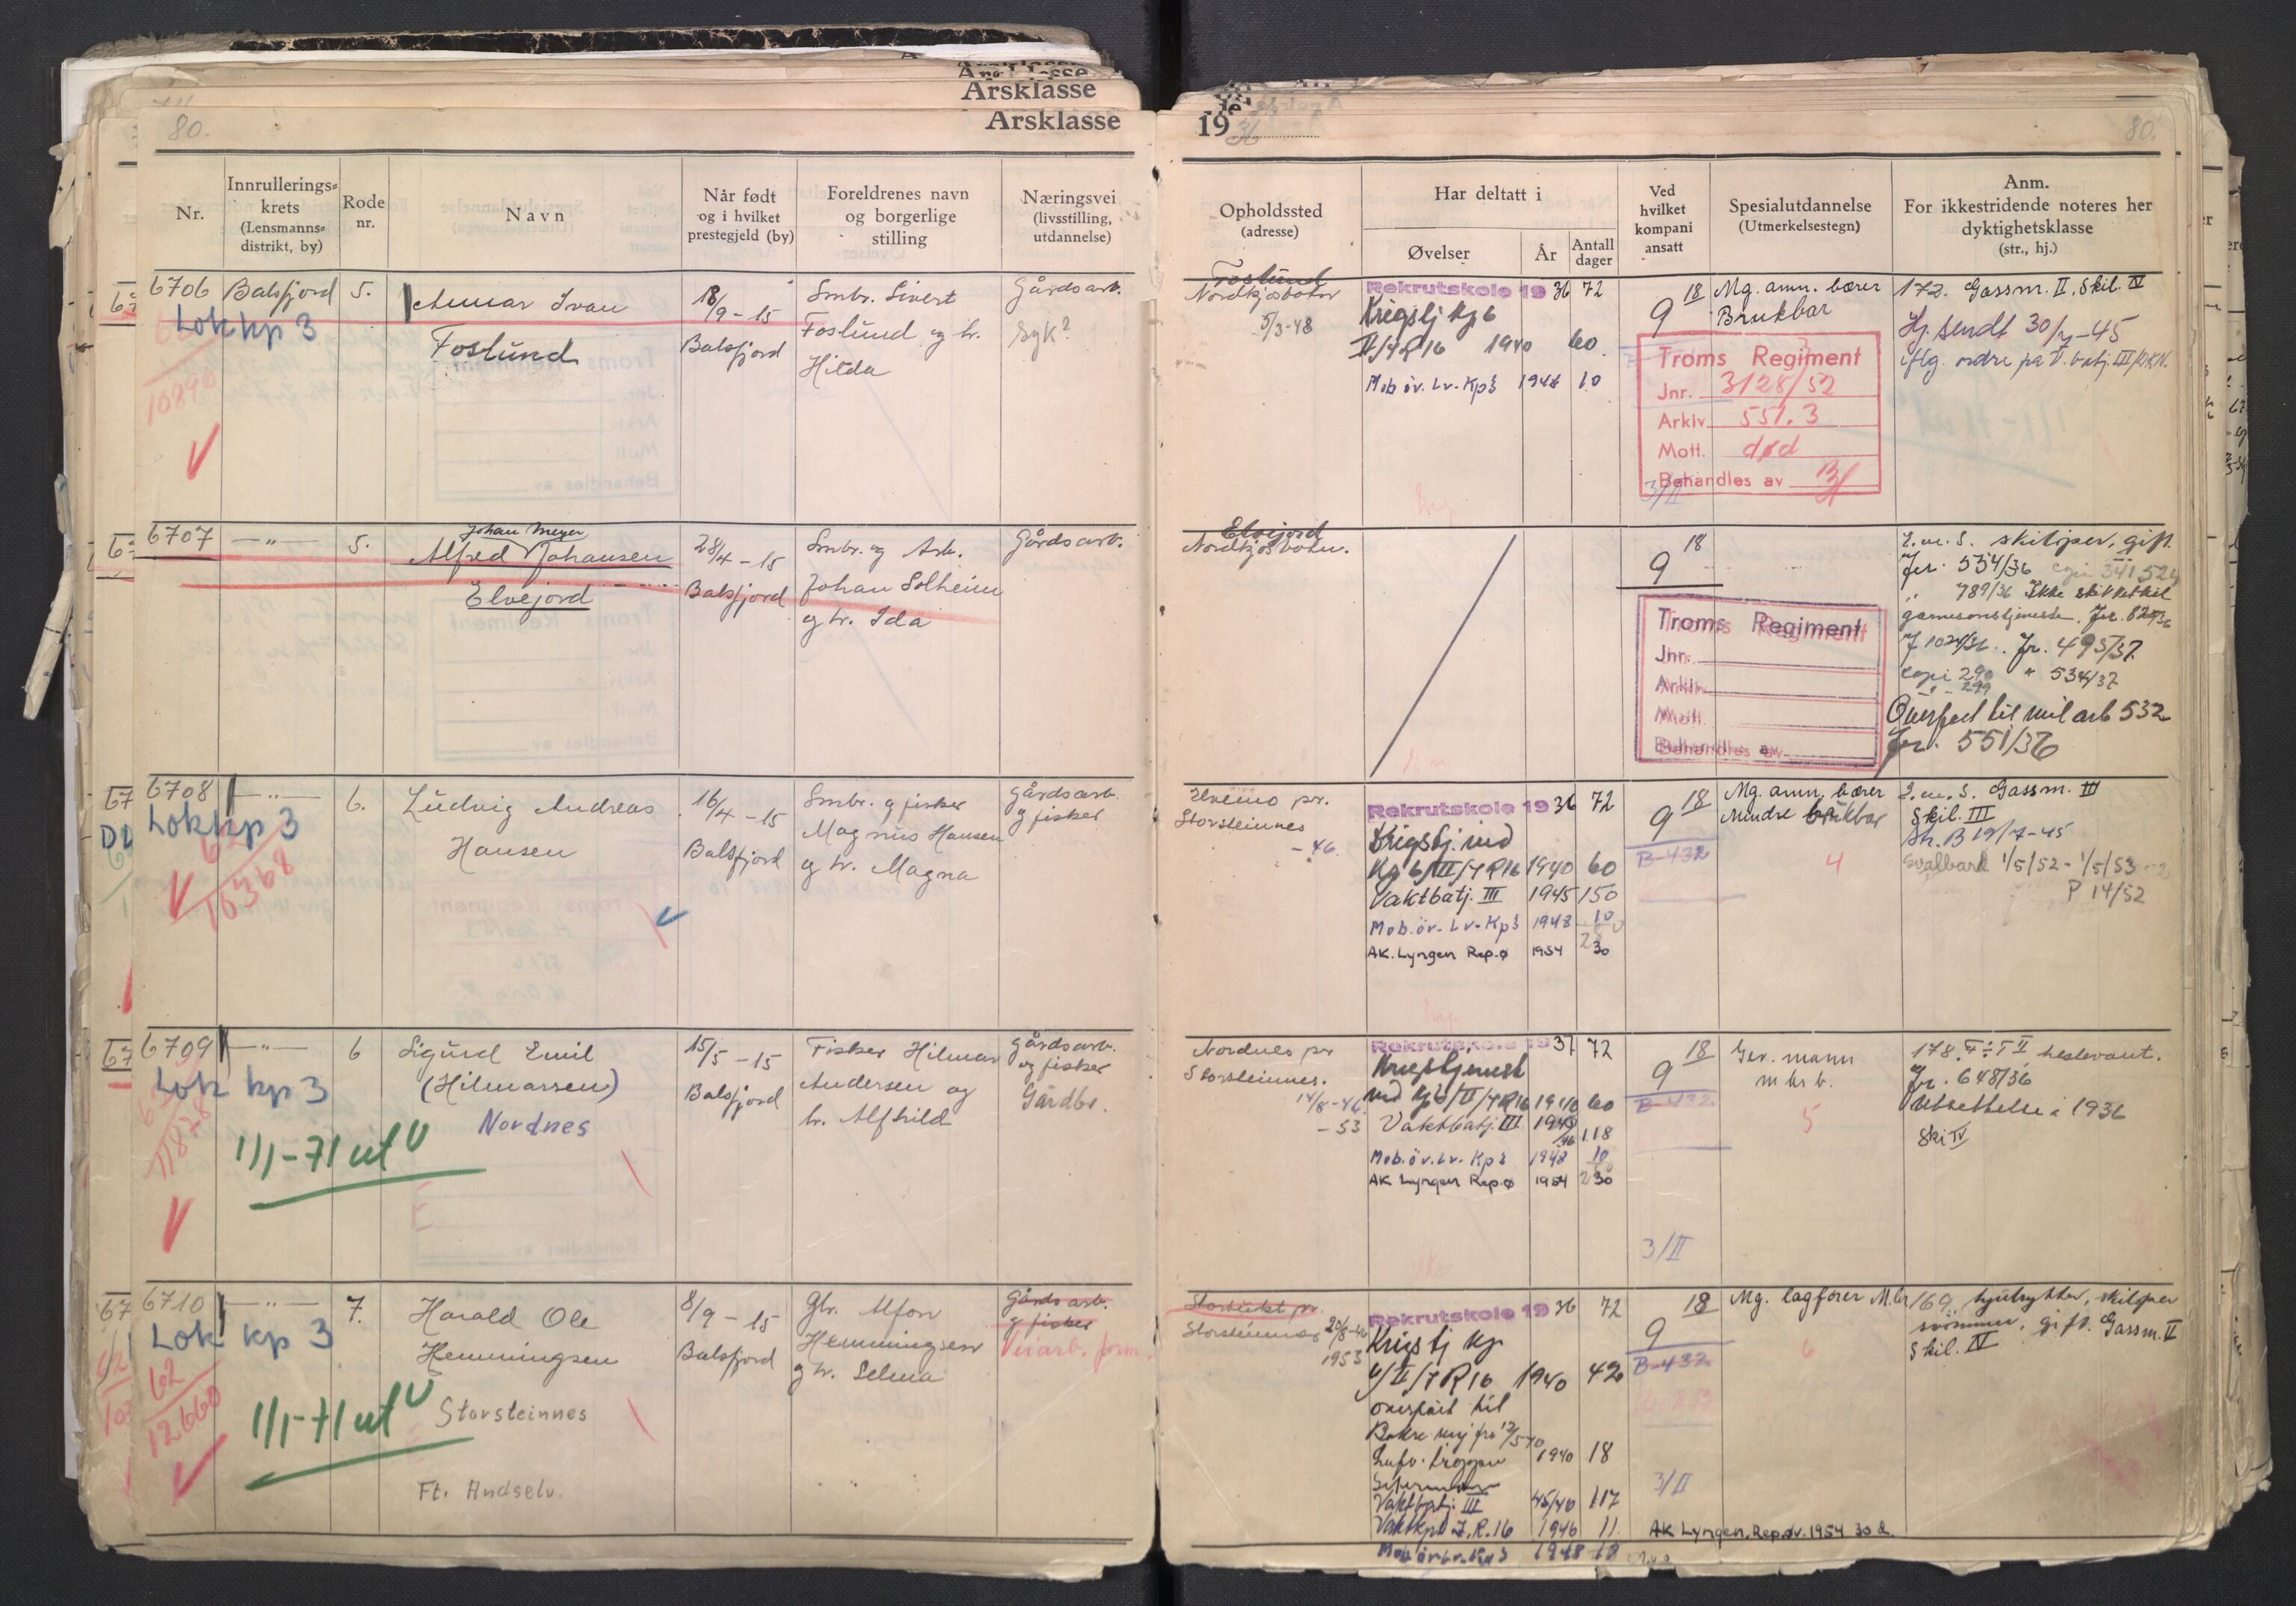 Årsklasse
80.
Nr.
Innrullerings-
krets
(Lensmanns-
distrikt, by)
Rode
nr.
Navn
Når født
og i hvilket
prestegjeld (by)
Foreldrenes navn
og borgerlige
stilling
Næringsvei
(livsstilling,
utdannelse)
6706 Balsfjord 5.
Ivan
Foslund
18/9-15
Balsfjord
Smbr. Sivert
Foslund og h.
Hilda
Gårdsarb.
Syk?
Lok kp 3
10890
6707 —"— 5.
Johan Meyer
Alfred Johansen
Elvejord
28/4-15
Balsfjord
Smbr. og Arb.
Johan Solheim
og h. Ida
Gårdsarb.
6708 —"— 6.
Lok kp 3
62
10368
Ludvig Andreas
Hansen
16/4-15
Balsfjord
Smbr. og fisker
Magnus Hansen
og h. Magna
Gårdsarb.
og fisker
6709 —"— 6
Lok kp 3
1/1-71 ut
Sigurd Emil
(Hilmarsen)
Nordnes
15/5-15
Balsfjord
Fisker Hilmar
Andersen og
h. Alfhild
Gårdsarb.
og fisker
Gårdbr.
6710 —"— 7.
Lok kp 3
62
12660
1/1-71 ut
Harald Ole
Hemmingsen
Storsteinnes
Ft. Andselv.
8/9-15
Balsfjord
Gbr. Alfon
Hemmingsen
og h. Selma
Gårdsarb.
og fisker
Veiarb. form.
1936
80.
Opholdssted
(adresse)
Har deltatt i
Øvelser
År
Antall
dager
Ved
hvilket
kompani
ansatt
Spesialutdannelse
(Utmerkelsestegn)
Anm.
For ikkestridende noteres her
dyktighetsklasse
(str., hj.)
Foslund
Nordkjosbotn
5/3-48
Rekrutskole 1936 72
Krigstj kp 6
II/IR16 1940 60
Mob.öv. Lv-Kp3 1948 10
18
9
Mg. amn. bærer
Brukbar
172. Gassm. II, Skil. IV
Hj. sendt 30/7-45
iflg. ordre fra V. batj. III/DKN.
Troms Regiment
Jnr. 3128/52
Arkiv 551.3
Mott. død
Behandles av
3/II
Elvejord
Nordkjosbotn.
18
9
Troms Regiment
Jnr.
Arkiv
Mott.
Behandles av
E.m.S. skiløper, gift.
Jr. 534/36
" 789/36 Ikke skikket til
garnisonstjeneste. Jr. 829/36
J 1024/36. Jr. 495/37.
copi 290 " 534/37
" - 299
Overført til mil arb 532
Jr. 551/36
Elvemo pr.
Storsteinnes
-46.
Rekrutskole 1936 72
Krigstj. ved
Kp 6/II/IR16 1940 60
Vaktbatj. III 1945 150
Mob.öv. Lv-Kp3 1948 10
AK. Lyngen Rep.ø 1954 30
18
9
B-432
Mg. amn. bærer
Mindre brukbar
4
E.m.S. Gassm. III
Skil. III
Str. B 19/7-45
Svalbard 1/5/52 - 1/5/53
P 14/52
Nordnes pr
Storsteinnes.
14/8-46
-53
Rekrutskole 1937 72
Krigstjenest
ved kp 6/II/IR16 1940 60
Vaktbatj. III 1945/46 118
Mob.öv. Lv-Kp3 1948 10
AK Lyngen Rep.ø 1954 30
18
9
B-432
3/II
Gev. mann
m br b.
5
Jr. 648/36
Utsettelse i 1936
Ski IV
Storsteinnes
20/8-46
1953
Rekrutskole 1936 72
Krigstj kp
4/II/IR16 1940 42
overført til
1940 18
Vaktbatj. III 45/46 117
Vaktkp I.R.16 1946 11
Mob.öv. Lv-Kp3 1948 10
18
9
B-432
3/II
AK Lyngen, Rep.øv. 1954 30 d.
Mg. lagfører M.br
6
169. hjulrytter, skiløper
svømmer, gift. Gassm. II
Skil. IV